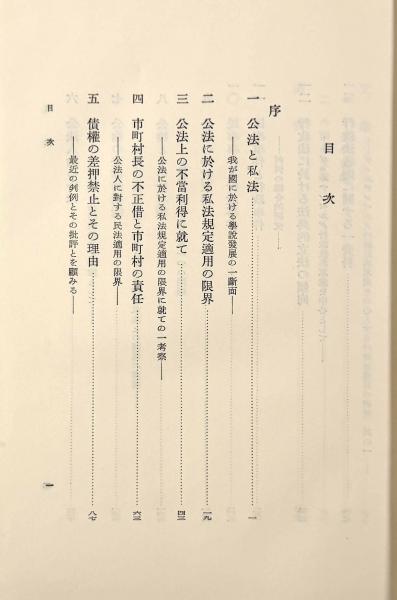 目次
序
一 公法と私法 一
——我が國に於ける學說發展の一斷面——
二 公法に於ける私法規定適用の限界 一九
三 公法上の不當利得に就て 四三
——公法に於ける私法規定適用の限界に就ての一考察——
四 市町村長の不正借と市町村の責任 六三
——公法人に對する民法適用の限界——
五 債權の差押禁止とその理由 八七
——最近の判例とその批評とを顧みる——
目次
一